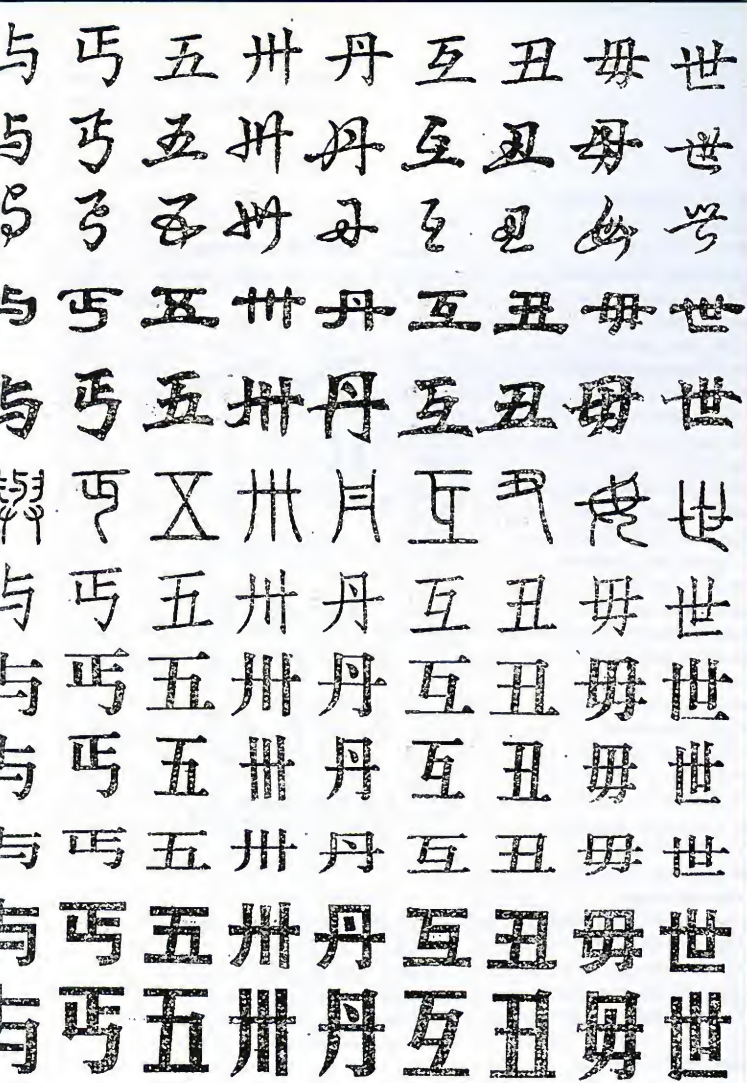 与 丐 五 卅 丹 互 丑 毋 世
与 丐 五 卅 丹 互 丑 毋 世
与 丐 五 卅 丹 互 丑 毋 世
与 丐 五 卅 丹 互 丑 毋 世
与 丐 五 卅 丹 互 丑 毋 世
與 丐 五 卅 丹 互 丑 毋 世
与 丐 五 卅 丹 互 丑 毋 世
与 丐 五 卅 丹 互 丑 毋 世
与 丐 五 卅 丹 互 丑 毋 世
与 丐 五 卅 丹 互 丑 毋 世
与 丐 五 卅 丹 互 丑 毋 世
与 丐 五 卅 丹 互 丑 毋 世